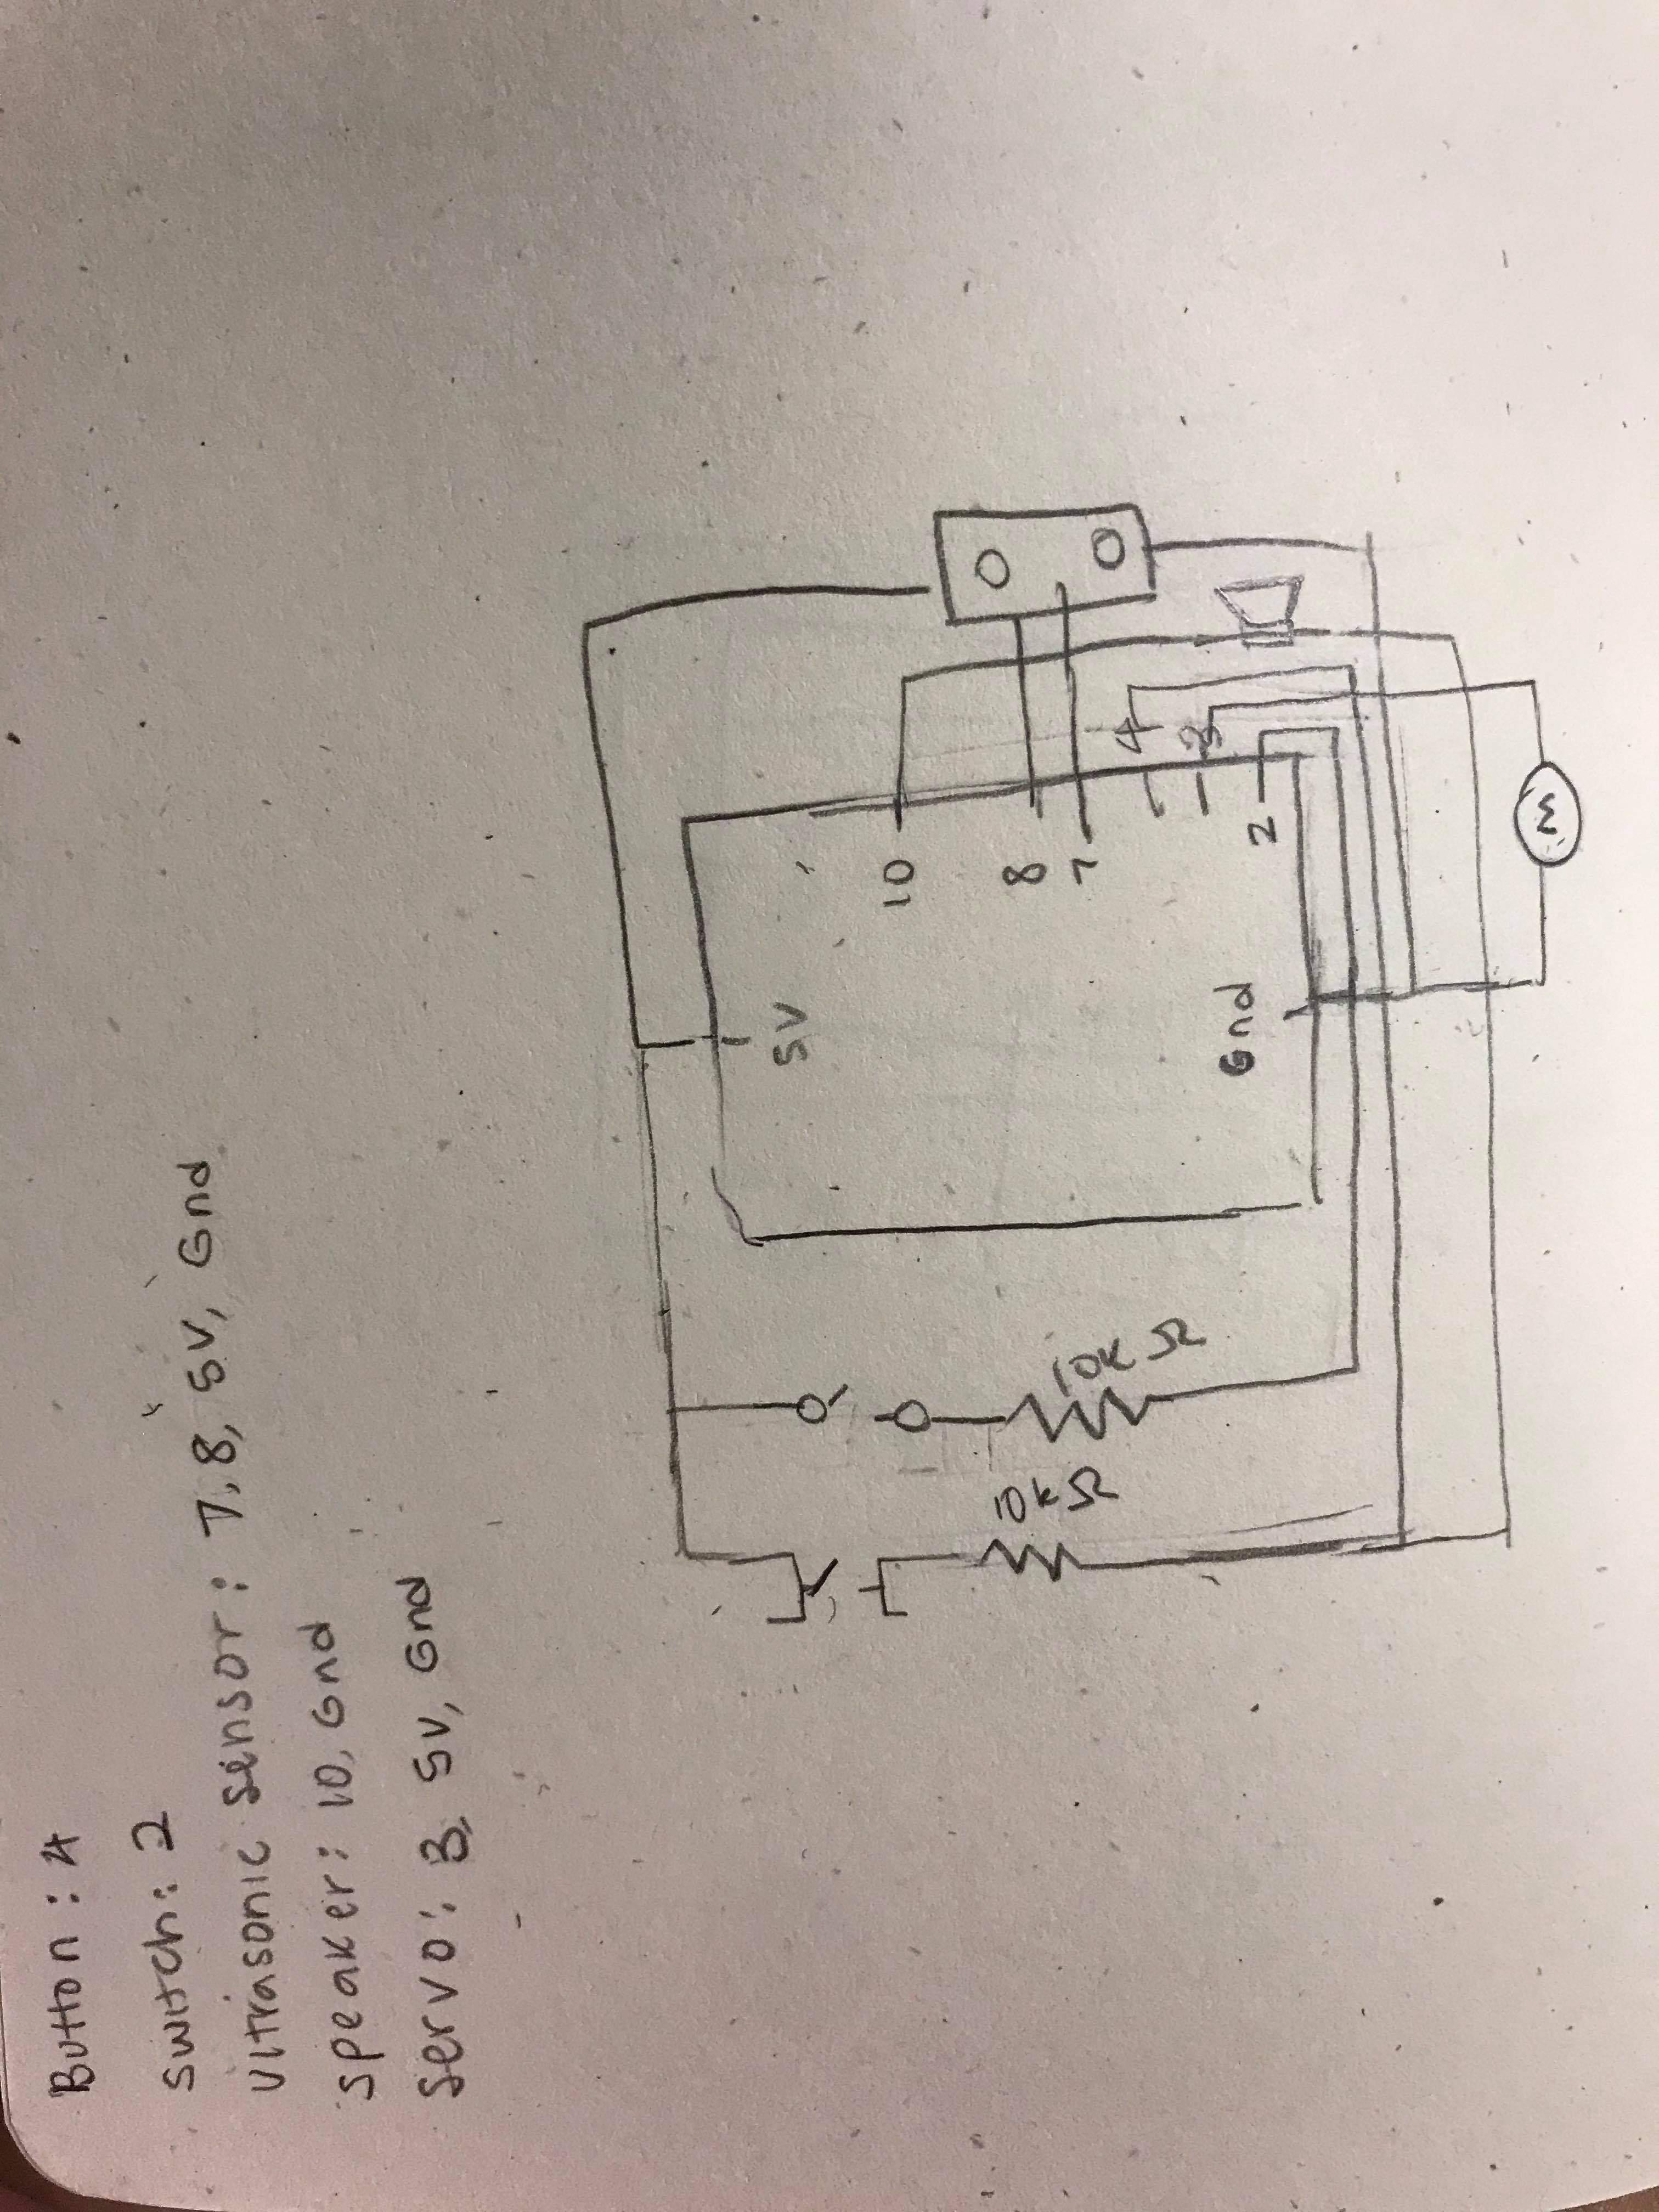 Button: 4
switch: 2
Ultrasonic sensor: 7, 8, 5V, Gnd
speaker: 10, Gnd
servo: 3, 5V, Gnd
5V
10
8
7
4
3
2
Gnd
10kΩ
10kΩ
M